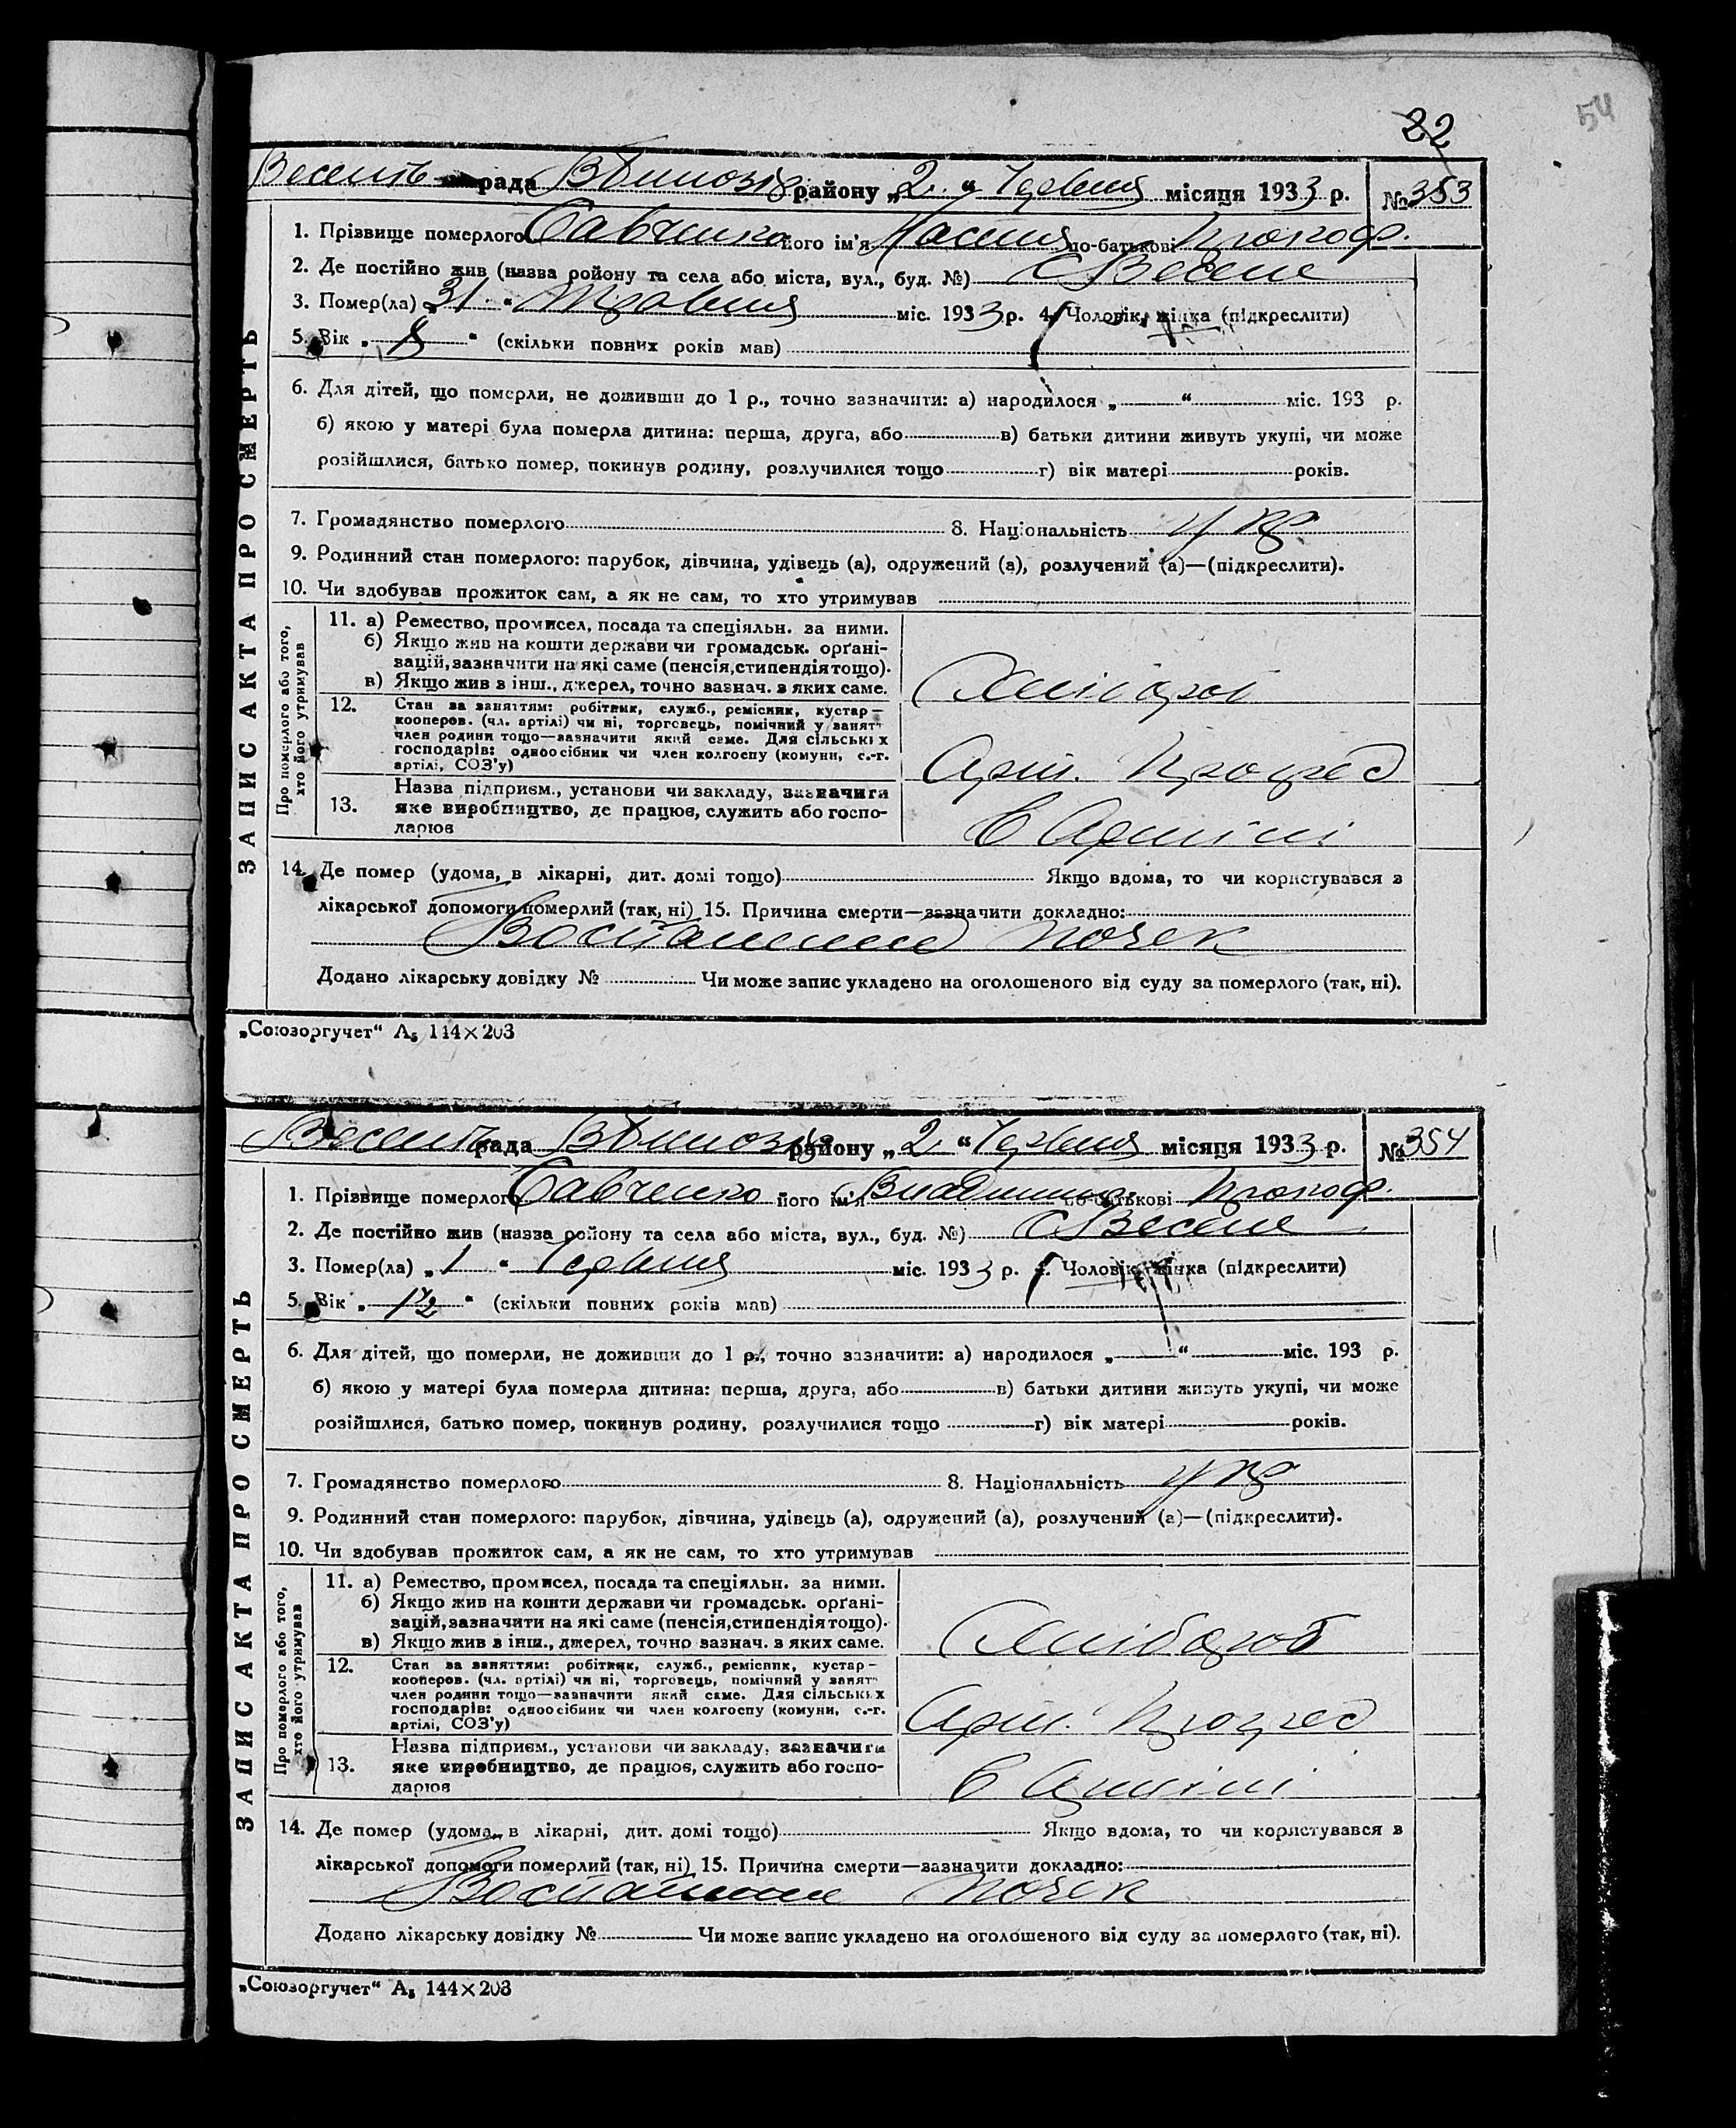 54
22
рада району „2.“ Червня місяця 1933 р. № 353
ЗАПИС АКТА ПРО СМЕРТЬ
1. Прізвище померлого Савченко його ім'я по-батькові Прокоф.
2. Де постійно жив (назва ройону та села або міста, вул., буд. №) с Веселе
3. Помер(ла) „31“ Травня міс. 1933 р. 4. Чоловік, жінка (підкреслити)
5. Вік „8“ (скільки повних років мав)
6. Для дітей, що померли, не доживши до 1 р., точно зазначити: а) народилося „ “ міс. 193 р.
б) якою у матері була померла дитина: перша, друга, або в) батьки дитини живуть укупі, чи може
розійшлися, батько помер, покинув родину, розлучилися тощо г) вік матері років.
7. Громадянство померлого 8. Національність укр
9. Родинний стан померлого: парубок, дівчина, удівець (а), одружений (а), розлучений (а)—(підкреслити).
10. Чи здобував прожиток сам, а як не сам, то хто утримував
Про померлого або того,
хто його утримував
11. а) Ремество, промисел, посада та спеціяльн. за ними.
б) Якщо жив на кошти держави чи громадськ. орґані-
зацій, зазначити на які саме (пенсія, стипендія тощо).
в) Якщо жив з інш., джерел, точно зазнач. з яких саме. Хлібороб
12. Стан за заняттям: робітник, служб., ремісник, кустар—
кооперов. (чл. артілі) чи ні, торговець, помічний у занят.
член родини тощо—зазначити який саме. Для сільських
господарів: одноосібник чи член колгоспу (комуни, с.-г.
артілі, СОЗ'у) Арт.
13. Назва підприєм., установи чи закладу, зазначити
яке виробництво, де працює, служить або госпо-
дарює В Артілі
14. Де помер (удома, в лікарні, дит. домі тощо) Якщо вдома, то чи користувався з
лікарської допомоги померлий (так, ні) 15. Причина смерти—зазначити докладно:
Воспаление почек
Додано лікарську довідку № Чи може запис укладено на оголошеного від суду за померлого (так, ні).
„Союзоргучет“ А₅ 144×203
рада району „2“ Червня місяця 1933 р. № 354
ЗАПИС АКТА ПРО СМЕРТЬ
1. Прізвище померлого Савченко його ім'я по-батькові Прокоф.
2. Де постійно жив (назва ройону та села або міста, вул., буд. №) с Веселе
3. Помер(ла) „1“ Червня міс. 1933 р. 4. Чоловік, жінка (підкреслити)
5. Вік „1½“ (скільки повних років мав)
6. Для дітей, що померли, не доживши до 1 р., точно зазначити: а) народилося „ “ міс. 193 р.
б) якою у матері була померла дитина: перша, друга, або в) батьки дитини живуть укупі, чи може
розійшлися, батько помер, покинув родину, розлучилися тощо г) вік матері років.
7. Громадянство померлого 8. Національність укр
9. Родинний стан померлого: парубок, дівчина, удівець (а), одружений (а), розлучений (а)—(підкреслити).
10. Чи здобував прожиток сам, а як не сам, то хто утримував
Про померлого або того,
хто його утримував
11. а) Ремество, промисел, посада та спеціяльн. за ними.
б) Якщо жив на кошти держави чи громадськ. орґані-
зацій, зазначити на які саме (пенсія, стипендія тощо).
в) Якщо жив з інш., джерел, точно зазнач. з яких саме. Хлібороб
12. Стан за заняттям: робітник, служб., ремісник, кустар—
кооперов. (чл. артілі) чи ні, торговець, помічний у занят.
член родини тощо—зазначити який саме. Для сільських
господарів: одноосібник чи член колгоспу (комуни, с.-г.
артілі, СОЗ'у) Арт.
13. Назва підприєм., установи чи закладу, зазначити
яке виробництво, де працює, служить або госпо-
дарює В Артілі
14. Де помер (удома, в лікарні, дит. домі тощо) Якщо вдома, то чи користувався з
лікарської допомоги померлий (так, ні) 15. Причина смерти—зазначити докладно:
Воспаление почек
Додано лікарську довідку № Чи може запис укладено на оголошеного від суду за померлого (так, ні).
„Союзоргучет“ А₅ 144×203